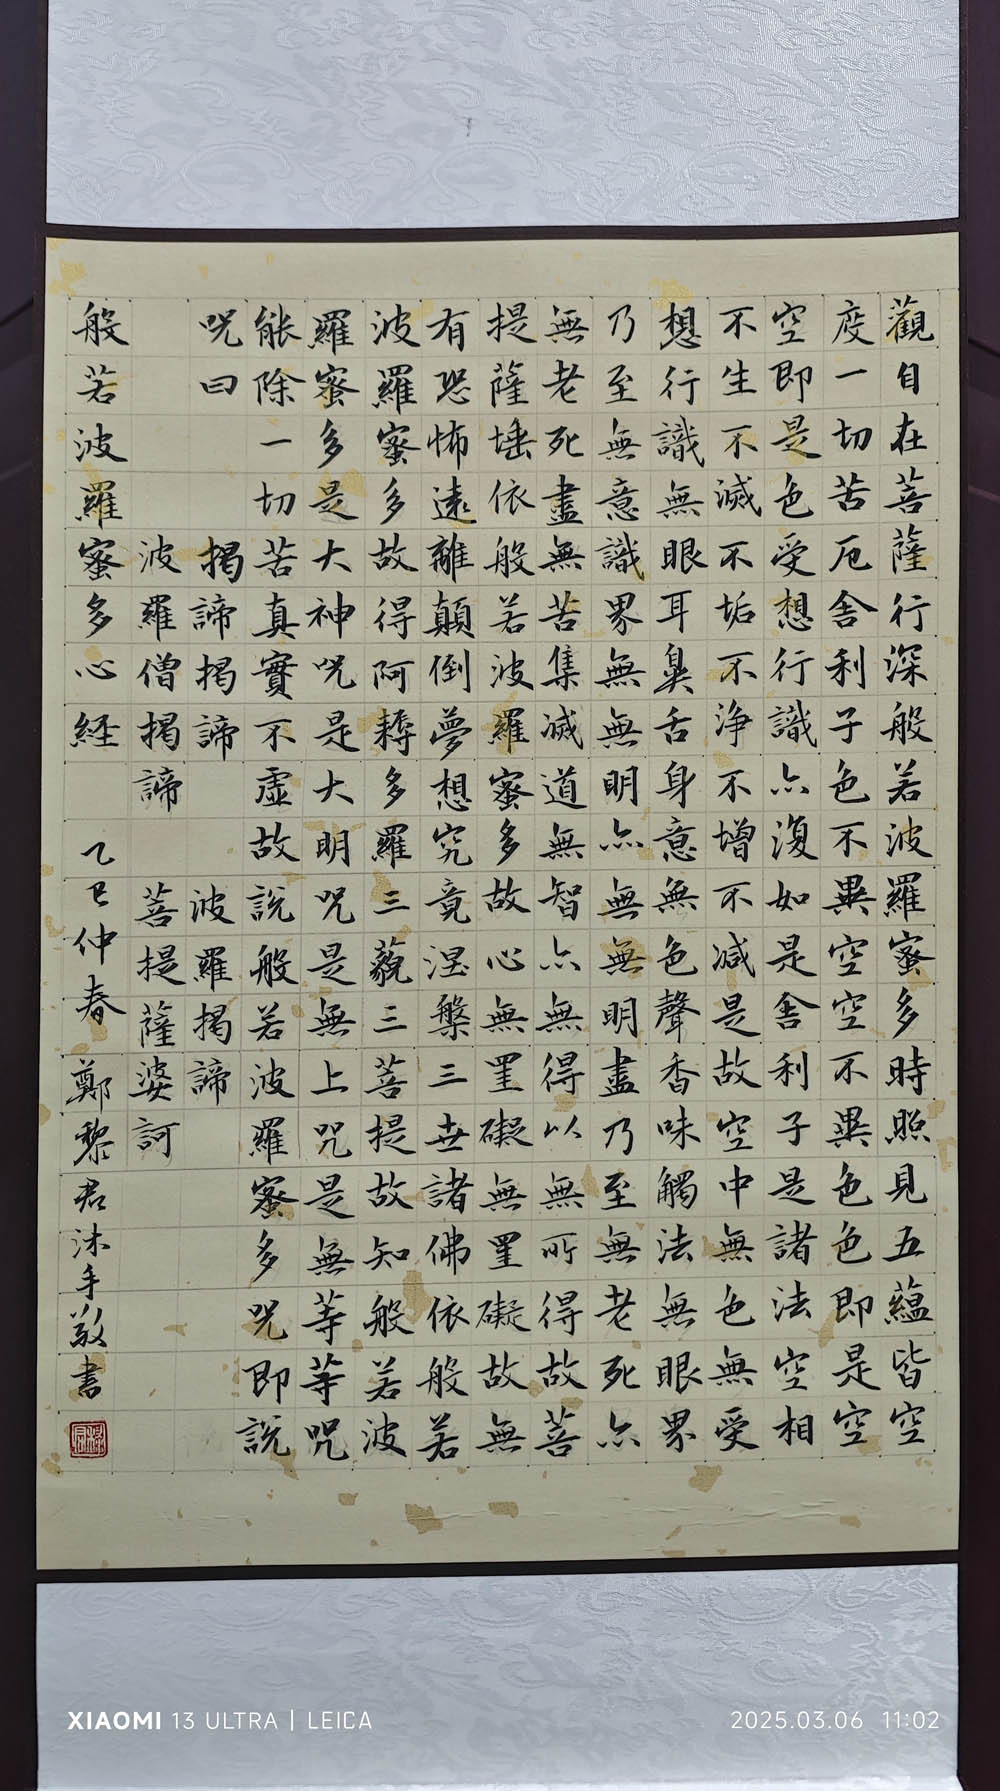 觀自在菩薩行深般若波羅蜜多時照見五蘊皆空
度一切苦厄舍利子色不異空空不異色色即是空
空即是色受想行識亦復如是舍利子是諸法空相
不生不滅不垢不净不增不减是故空中無色無受
想行識無眼耳鼻舌身意無色聲香味觸法無眼界
乃至無意識界無無明亦無無明盡乃至無老死亦
無老死盡無苦集滅道無智亦無得以無所得故菩
提薩埵依般若波羅蜜多故心無罣礙無罣礙故無
有恐怖遠離顛倒夢想究竟涅槃三世諸佛依般若
波羅蜜多故得阿耨多羅三藐三菩提故知般若波
羅蜜多是大神呪是大明呪是無上呪是無等等呪
能除一切苦真實不虛故說般若波羅蜜多呪即說
呪曰 揭諦揭諦 波羅揭諦
波羅僧揭諦 菩提薩婆訶
般若波羅蜜多心経 乙巳仲春 鄭黎君沐手敬書
XIAOMI 13 ULTRA | LEICA
2025.03.06 11:02